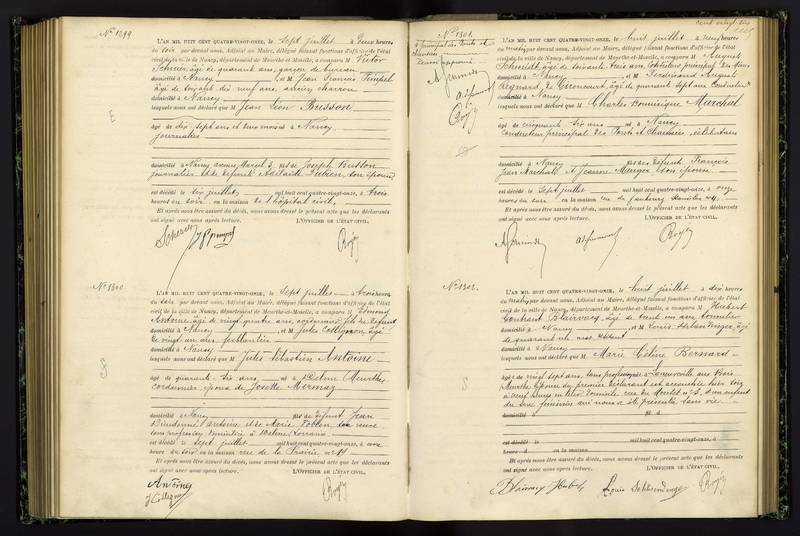 N° 1299
L'AN MIL HUIT CENT QUATRE-VINGT-ONZE, le sept juillet à deux heures
du soir par devant nous, Adjoint au Maire, délégué faisant fonctions d'officier de l'état
civil de la ville de Nancy, département de Meurthe-et-Moselle, a comparu M Victor
âgé de quarante ans, garçon de bureau
domicilié à Nancy, et M Jean François
âgé de soixante dix neuf ans, ancien charron
domicilié à Nancy
lesquels nous ont déclaré que M Jean Léon Busson
âgé de dix sept ans et onze mois né à Nancy
journalier
domicilié à Nancy, fils de Joseph Busson
journalier, et de défunte Adélaïde, son épouse
est décédé le six juillet mil huit cent quatre-vingt-onze, à trois
heures du soir en la maison de l'hôpital civil,
Et après nous être assuré du décès, nous avons dressé le présent acte que les déclarants
ont signé avec nous après lecture. L'OFFICIER DE L'ÉTAT CIVIL,
E
N° 1300
L'AN MIL HUIT CENT QUATRE-VINGT-ONZE, le sept juillet à trois heures
du soir par devant nous, Adjoint au Maire, délégué faisant fonctions d'officier de l'état
civil de la ville de Nancy, département de Meurthe-et-Moselle, a comparu M Edmond
Antoine, âgé de vingt quatre ans, fils du défunt
domicilié à Nancy, et M Jules Collignon âgé
de vingt un ans, ferblantier
domicilié à Nancy
lesquels nous ont déclaré que M Jules Sébastien Antoine
âgé de quarante six ans né à Delme Meurthe
cordonnier, époux de Josette Mermaz
domicilié à Nancy fils de défunt Jean
Dieudonné Antoine et de Marie, sa veuve
sans profession, domiciliée à Delme Lorraine
est décédé le sept juillet mil huit cent quatre-vingt-onze, à
heure du soir en la maison rue de la Prairie, n° 19
Et après nous être assuré du décès, nous avons dressé le présent acte que les déclarants
ont signé avec nous après lecture. L'OFFICIER DE L'ÉTAT CIVIL,
Antoine
J Collignon
N° 1301
L'AN MIL HUIT CENT QUATRE-VINGT-ONZE, le huit juillet à neuf heures
du matin par devant nous, Adjoint au Maire, délégué faisant fonctions d'officier de l'état
civil de la ville de Nancy, département de Meurthe-et-Moselle, a comparu M Auguste
âgé de soixante trois ans, conducteur principal
domicilié à Nancy, et M Ferdinand Auguste
Regnard de Gironcourt, âgé de quarante sept ans conducteur
domicilié à Nancy
lesquels nous ont déclaré que M Charles Dominique Marchal
âgé de cinquante six ans né à Nancy
conducteur principal des Ponts et Chaussées, célibataire
domicilié à Nancy fils de défunt François
Jean Marchal et Jeanne Mauger, son épouse
est décédé le sept juillet mil huit cent quatre-vingt-onze, à onze
heures du soir en la maison rue du faubourg Stanislas
Et après nous être assuré du décès, nous avons dressé le présent acte que les déclarants
ont signé avec nous après lecture. L'OFFICIER DE L'ÉTAT CIVIL,
N° 1302
L'AN MIL HUIT CENT QUATRE-VINGT-ONZE, le huit juillet à dix heures
du matin par devant nous, Adjoint au Maire, délégué faisant fonctions d'officier de l'état
civil de la ville de Nancy, département de Meurthe-et-Moselle, a comparu M Hubert
âgé de trente un ans
domicilié à Nancy, et M Louis, âgé
de quarante un ans
domicilié à Nancy
lesquels nous ont déclaré que M Marie Céline Bernard
âgée de vingt sept ans, sans profession, née à Laneuveville aux Bois
Meurthe épouse du premier déclarant est accouchée hier soir
à neuf heures en leur domicile rue du Montet n° 5, d'un enfant
du sexe féminin qui nous a été présenté sans vie
domicilié à fil d
est décédé le mil huit cent quatre-vingt-onze, à
heure d en la maison
Et après nous être assuré du décès, nous avons dressé le présent acte que les déclarants
ont signé avec nous après lecture. L'OFFICIER DE L'ÉTAT CIVIL,